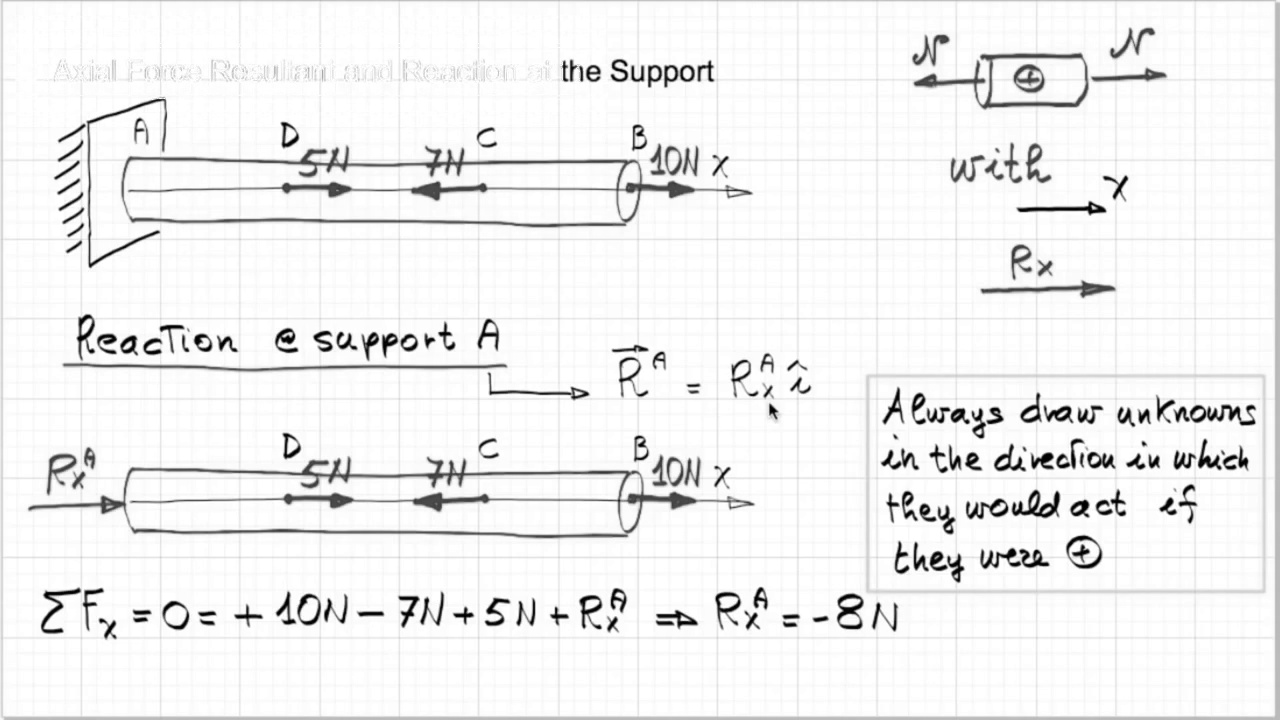 Axial Force Resultant and Reaction at the Support
N N
A D 5N 7N C B 10N x
with
x
Rx
Reaction @ support A
R^A = Rx^A î
Always draw unknowns
in the direction in which
they would act if
they were ⊕
Rx^A D 5N 7N C B 10N x
ΣFx = 0 = + 10N − 7N + 5N + Rx^A ⇒ Rx^A = -8N